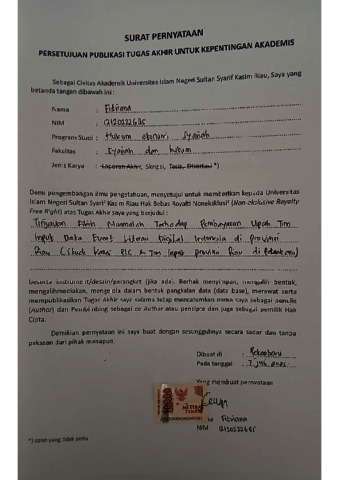 SURAT PERNYATAAN
PERSETUJUAN PUBLIKASI TUGAS AKHIR UNTUK KEPENTINGAN AKADEMIS
Sebagai Civitas Akademik Universitas Islam Negeri Sultan Syarif Kasim Riau, Saya yang
betanda tangan dibawah ini :
Nama : Fitriana
NIM : 12120222695
Program Studi : Hukum ekonomi Syariah
Fakultas : Syariah dan hukum
Jenis Karya : Laporan Akhir, Skripsi, Tesis, Disertasi *)
Demi pengembangan ilmu pengetahuan, menyetujui untuk memberikan kepada Universitas
Islam Negeri Sultan Syarif Kasim Riau Hak Bebas Royalti Noneksklusif (Non-exclusive Royalty
Free Right) atas Tugas Akhir saya yang berjudul :
Tinjauan Fikih Muamalah Terhadap Pembayaran Upah Tim
Input Data Event Literasi Digital Indonesia di provinsi
Riau (Studi Kasus PIC & Tim Input provinsi Riau di Pekanbaru)
beserta instrument/desain/perangkat (jika ada). Berhak menyimpan, mengalih bentuk,
mengalihmediakan, mengelola dalam bentuk pangkalan data (data base), merawat serta
mempublikasikan Tugas Akhir saya selama tetap mencatumkan nama saya sebagai penulis
(Author) dan Pembimbing sebagai co Author atau pencipta dan juga sebagai pemilik Hak
Cipta.
Demikian pernyataan ini saya buat dengan sesungguhnya secara sadar dan tanpa
paksaan dari pihak manapun.
Dibuat di : Pekanbaru
Pada tanggal :
Yang membuat pernyataan
10000
METERAI
TEMPEL
Fitriana
NIM
*) coret yang tidak perlu